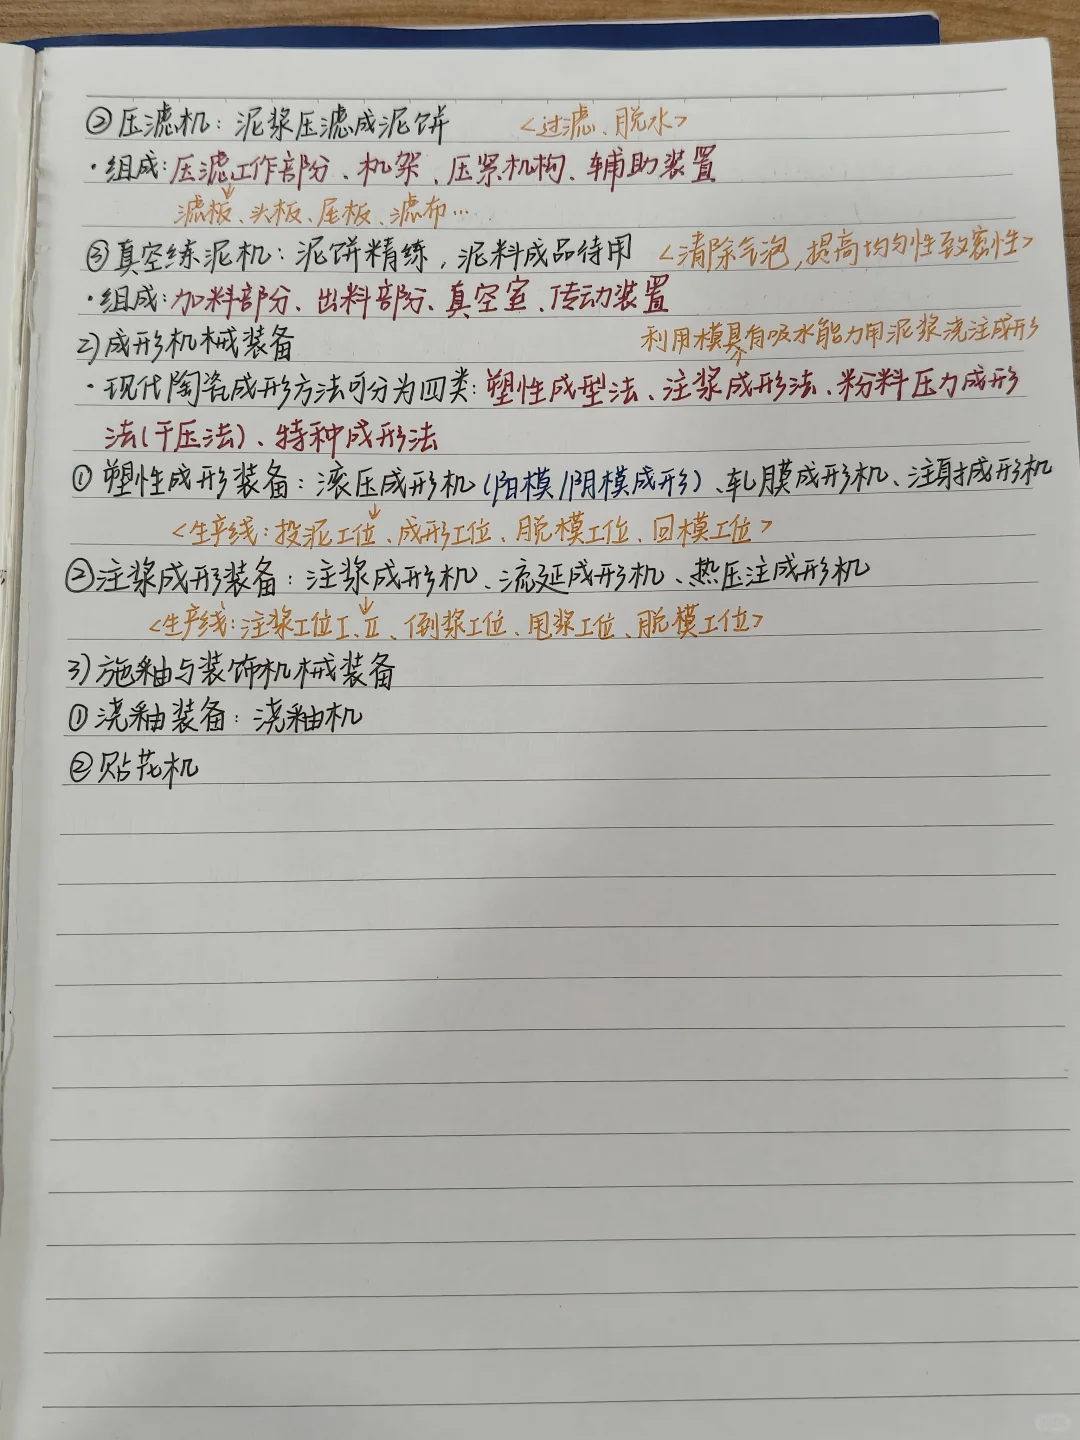 ②压滤机：泥浆压滤成泥饼 <过滤、脱水>
·组成：压滤工作部分、机架、压紧机构、辅助装置
滤板、头板、尾板、滤布…
③真空练泥机：泥饼精练，泥料成品待用 <清除气泡，提高均匀性致密性>
·组成：加料部分、出料部分、真空室、传动装置
2)成形机械装备 利用模具有吸水能力用泥浆浇注成形
·现代陶瓷成形方法可分为四类：塑性成型法、注浆成形法、粉料压力成形
法(干压法)、特种成形法
①塑性成形装备：滚压成形机(阳模/阴模成形)、轧膜成形机、注射成形机
<生产线：投泥工位、成形工位、脱模工位、回模工位>
②注浆成形装备：注浆成形机、流延成形机、热压注成形机
<生产线：注浆工位I、II、倒浆工位、甩浆工位、脱模工位>
3)施釉与装饰机械装备
①浇釉装备：浇釉机
②贴花机